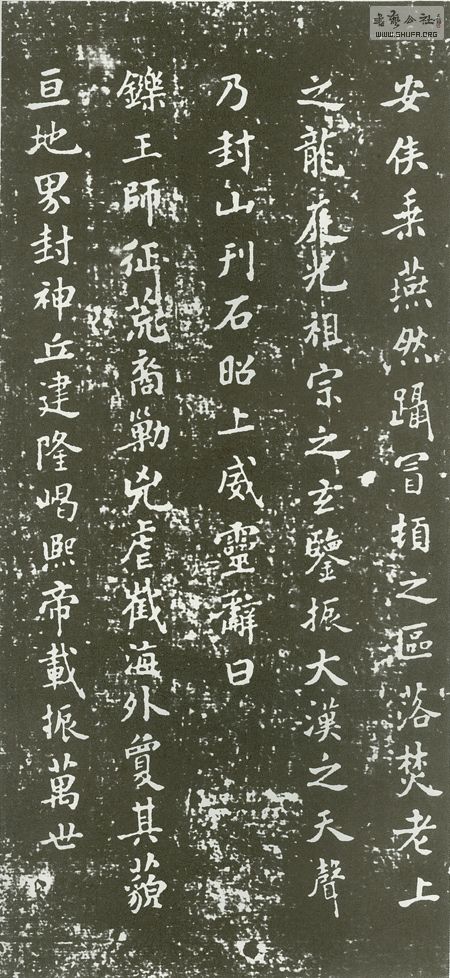 安侯乗燕然躡冒頓之區落焚老上
之龍庭光祖宗之玄鑒振大漢之天聲
乃封山刊石昭上威靈辭曰
鑠王師征荒裔勦兇虐截海外夐其藐
亘地界封神丘建隆嵑熙帝載振萬世
書藝公社
WWW.SHUFA.ORG